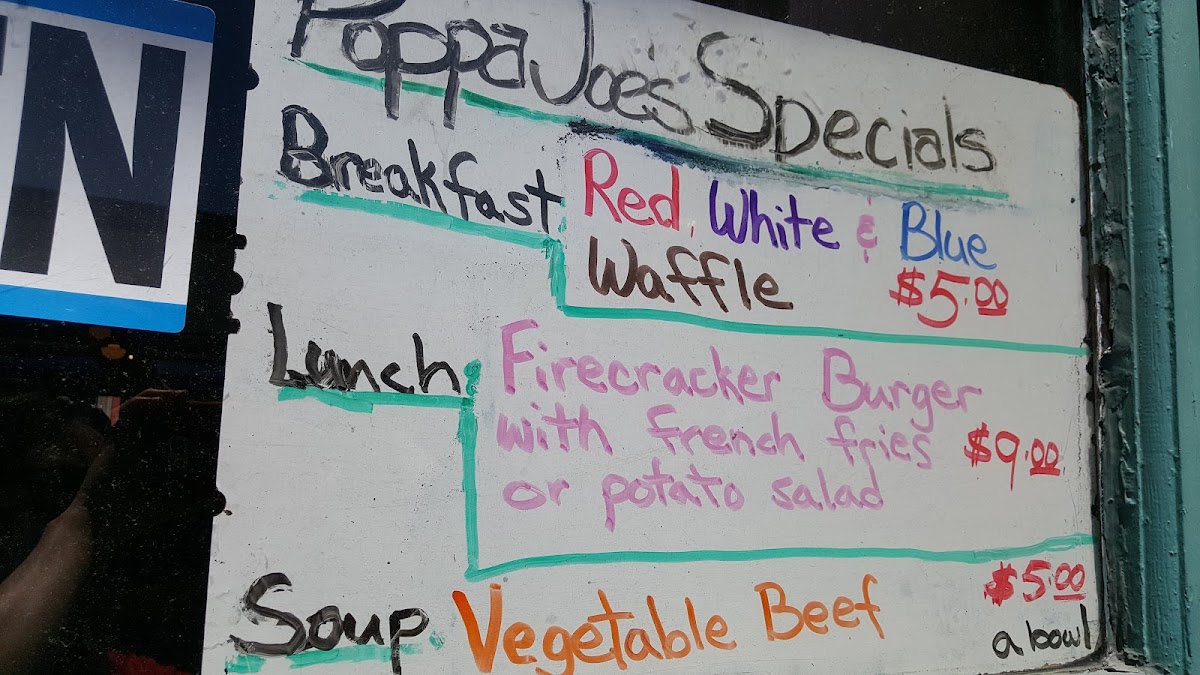 N
Poppa Joe's Specials
Breakfast
Red, White & Blue
Waffle $5.00
Lunch
Firecracker Burger
with french fries $9.00
or potato salad
Soup Vegetable Beef $5.00
a bowl